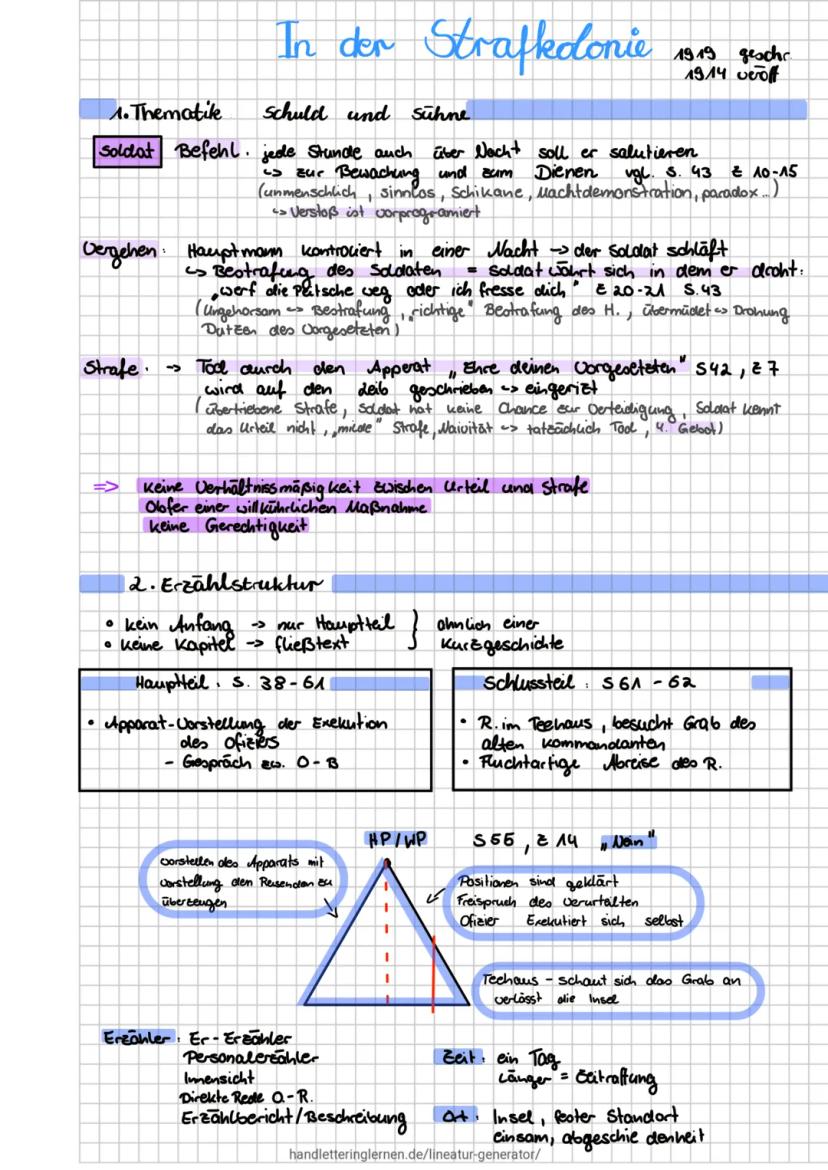 In der Strafkolonie
1919 geschr.
1914 veröff
1. Thematik Schuld und Sühne
Soldat Befehl. jede Stunde auch über Nacht soll er salutieren
↳ zur Bewachung und zum Dienen vgl. S. 43 Z 10-15
(unmenschlich, sinnlos, Schikane, Machtdemonstration, paradox...)
↳ Verstoß ist vorprogramiert
Vergehen: Hauptmann kontroliert in einer Nacht → der Soldat schläft
↳ Bestrafung des Soldaten = Soldat währt sich in dem er droht:
„werf die Peitsche weg oder ich fresse dich" Z 20-21 S. 43
(Ungehorsam ↔ Bestrafung, „richtige" Bestrafung des H., übermüdet ↔ Drohung
Dutzen des Vorgesetzten)
Strafe. → Tod durch den Apperat „Ehre deinen Vorgesetzten" S 42, Z 7
wird auf den Leib geschrieben ↔ eingerizt
(übertriebene Strafe, Soldat hat keine Chance zur Verteidigung, Soldat kennt
das Urteil nicht, „milde" Strafe, Naivität ↔ tatsächlich Tod, 4. Gebot)
⇒ keine Verhältnissmäßigkeit zwischen Urteil und Strafe
Obfer einer willkührlichen Maßnahme
keine Gerechtigkeit
2. Erzählstruktur
• kein Anfang → nur Hauptteil } ähnlich einer
• keine Kapitel → fließtext } Kurzgeschichte
Hauptteil. S. 38-61
• Apparat-Vorstellung der Exekution
des Ofiziers
- Gespräch zw. O - B
Schlussteil: S 61 - 62
• R. im Teehaus, besucht Grab des
alten Kommandanten
• Fluchtartige Abreise des R.
HP/WP S 55, Z 14 „Nein"
vorstellen des Apparats mit
Vorstellung den Reisenden zu
überzeugen
Positionen sind geklärt
Freispruch des Verurtälten
Ofizier Exekutiert sich selbst
Teehaus - schaut sich das Grab an
verlässt die Insel
Erzähler: Er-Erzähler
Personalerzähler
Innensicht
Direkte Rede O-R.
Erzählbericht/Beschreibung
Zeit: ein Tag
Länger = Zeitraffung
Ort: Insel, fester Standort
einsam, abgeschiedenheit
handletteringlernen.de/lineatur-generator/